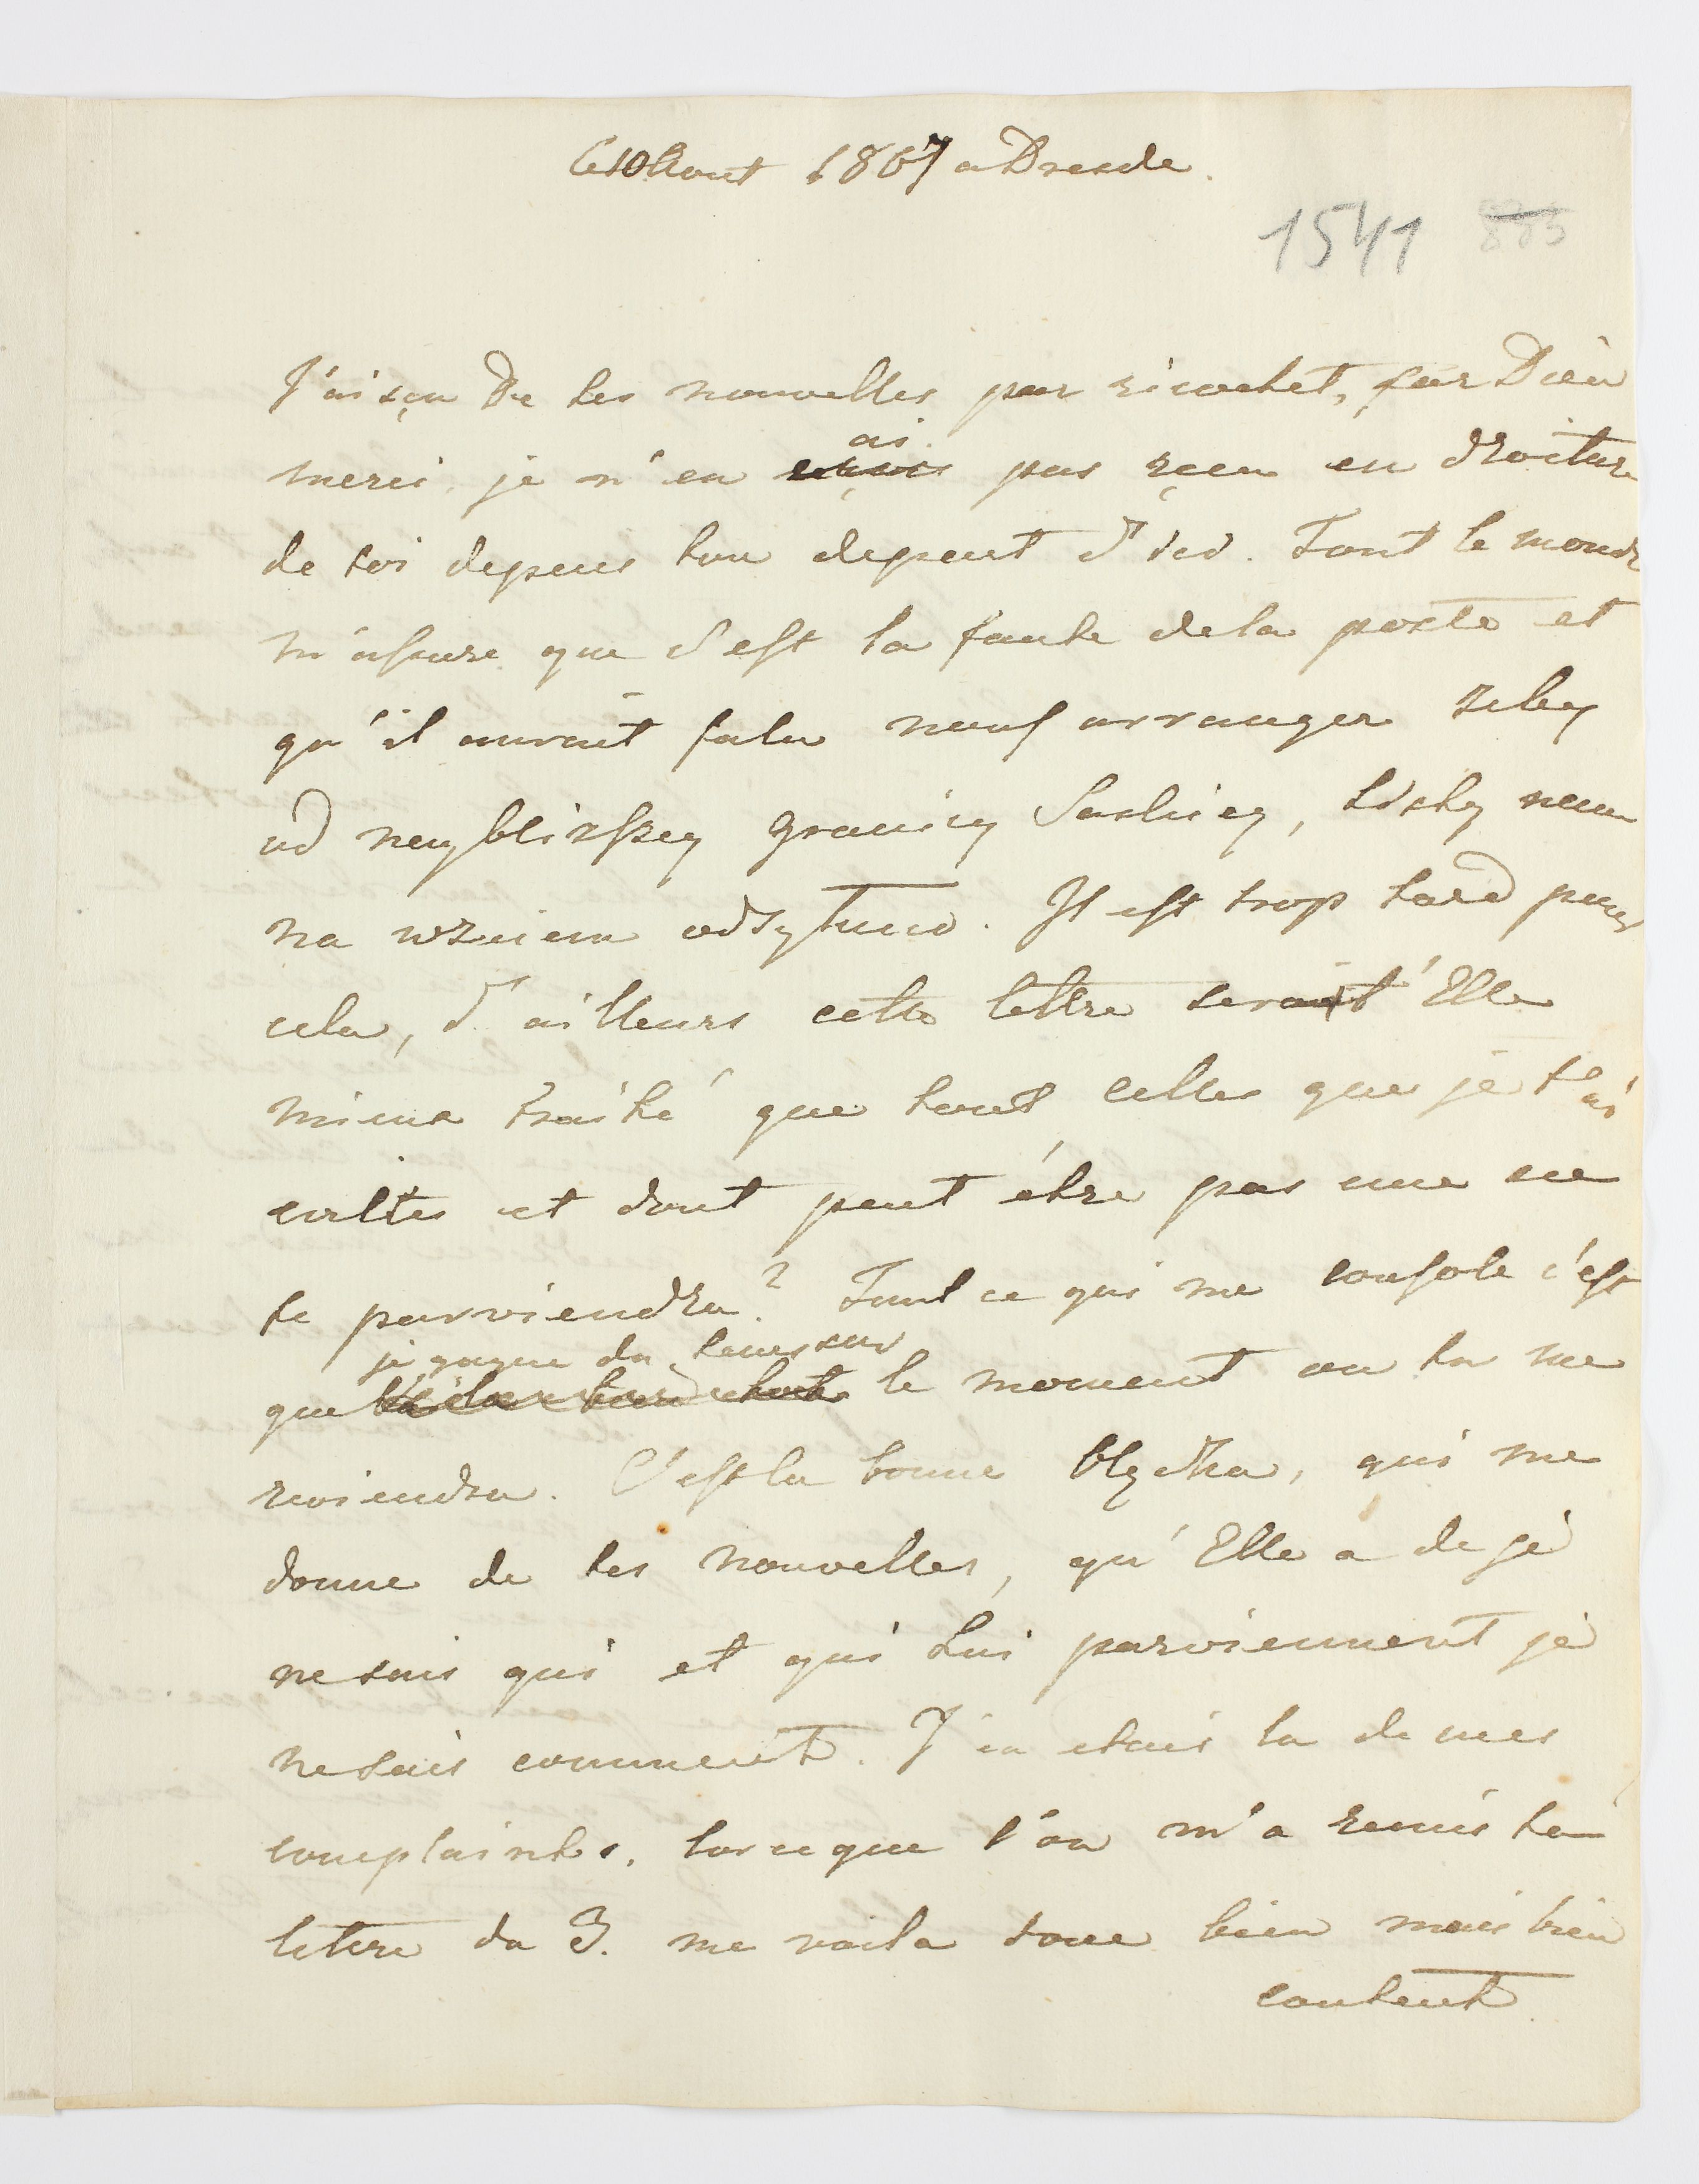 Ce 10 Aout 1807 a Dresde.
1541 885
J'ai sçu De tes nouvelles par ricochet, car Dieu
merci, je n'en ai pas reçu en droiture
de toi depuis ton depart d'ici. Tout le monde
m'assure que c'est la faute de la poste et
qu'il aurait falu nous arranger zeby
od neyblizszey granicy Saskiey, listy nam
na wzaiem odsyłano. Il est trop tard pour
cela, d'ailleurs cette lettre serait Elle
mieux traité que tout celles que je t'ai
ecrites et dont peut étre pas une ne
te parviendra? Tout ce qui me console c'est
que je gagne du tems sur le moment ou tu me
reviendra. C'est la bonne Blyska, qui me
donne de tes nouvelles, qu'Elle a de je
ne sais qui et qui Lui parviennent je
ne sais comment. J'en etais la de mes
complaintes, lorsque l'on m'a remis ta
lettre du 3. me voila donc bien mais bien
content